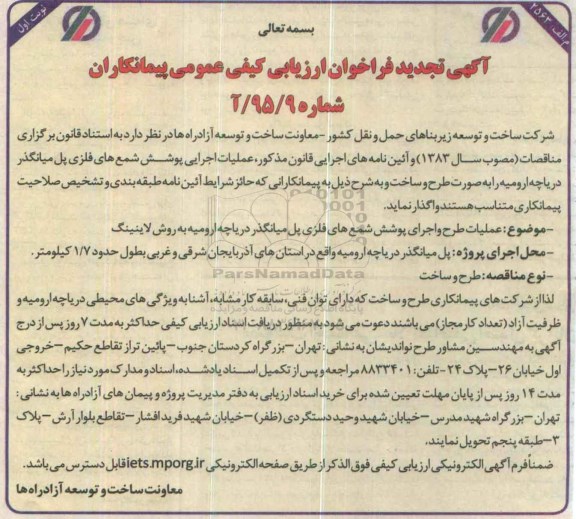 م الف: ۲۵۶۳
نوبت اول
بسمه تعالی
آگهی تجدید فراخوان ارزیابی کیفی عمومی پیمانکاران
شماره ۹۵/۹/آ
شرکت ساخت و توسعه زیربناهای حمل و نقل کشور -معاونت ساخت و توسعه آزادراه‌ها در نظر دارد به استناد قانون برگزاری
مناقصات (مصوب سال ۱۳۸۳) و آئین نامه های اجرایی قانون مذکور، عملیات اجرایی پوشش شمع های فلزی پل میانگذر
دریاچه ارومیه را به صورت طرح و ساخت و به شرح ذیل به پیمانکارانی که حائز شرایط آئین نامه طبقه بندی و تشخیص صلاحیت
پیمانکاری متناسب هستند واگذار نماید.
-موضوع: عملیات طرح و اجرای پوشش شمع های فلزی پل میانگذر دریاچه ارومیه به روش لاینینگ
-محل اجرای پروژه: پل میانگذر دریاچه ارومیه واقع در استان های آذربایجان شرقی و غربی بطول حدود ۱/۷ کیلومتر.
-نوع مناقصه: طرح و ساخت
ParsNamadData
پایگاه اطلاع رسانی مناقصه و مزایده
لذا از شرکت های پیمانکاری طرح و ساخت که دارای توان فنی، سابقه کار مشابه، آشنا به ویژگی های محیطی دریاچه ارومیه و
ظرفیت آزاد (تعداد کار مجاز) می باشند دعوت می شود به منظور دریافت اسناد ارزیابی کیفی حداکثر به مدت ۷ روز پس از درج
آگهی به مهندسین مشاور طرح نواندیشان به نشانی: تهران -بزرگراه کردستان جنوب -پائین تر از تقاطع حکیم -خروجی
اول خیابان ۲۶-پلاک ۲۴- تلفن: ۸۸۳۳۴۰۱ مراجعه و پس از تکمیل اسناد یاد شده، اسناد و مدارک مورد نیاز را حداکثر به
مدت ۱۴ روز پس از پایان مهلت تعیین شده برای خرید اسناد ارزیابی به دفتر مدیریت پروژه و پیمان های آزادراه ها به نشانی:
تهران -بزرگراه شهید مدرس -خیابان شهید وحید دستگردی (ظفر) -خیابان شهید فرید افشار -تقاطع بلوار آرش -پلاک
۳-طبقه پنجم تحویل نمایند.
ضمناً فرم آگهی الکترونیکی ارزیابی کیفی فوق الذکر از طریق صفحه الکترونیکی iets.mporg.ir قابل دسترس می باشد.
معاونت ساخت و توسعه آزادراه ها